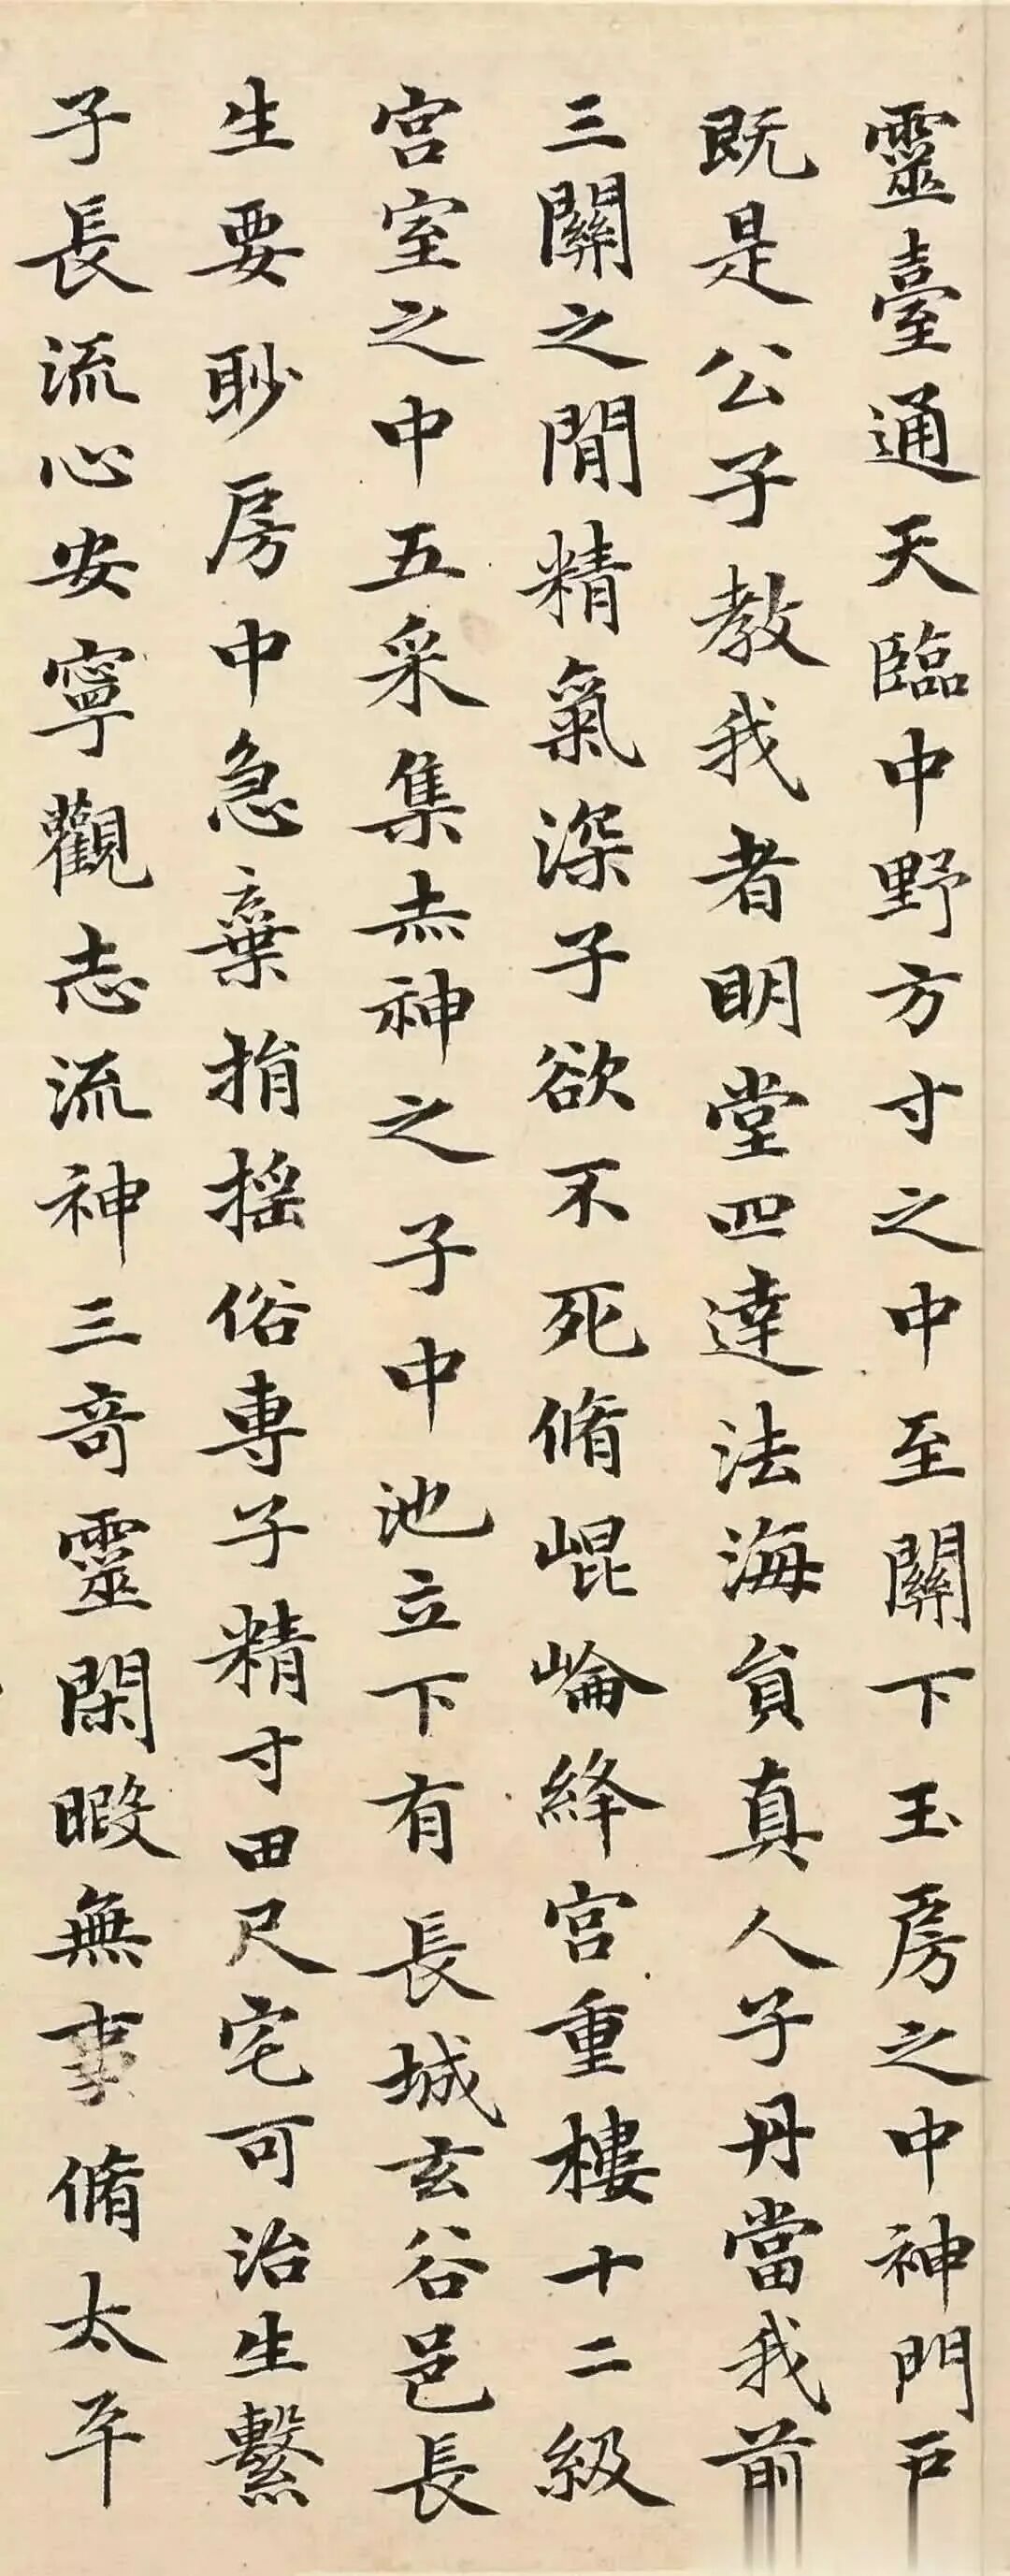 靈臺通天臨中野方寸之中至關下玉房之中神門戶
既是公子教我者明堂四達法海負真人子丹當我前
三關之閒精氣深子欲不死脩崐崘絳宮重樓十二級
宮室之中五采集赤神之子中池立下有長城玄谷邑長
生要眇房中急棄捐搖俗專子精寸田尺宅可治生繫
子長流心安寧觀志流神三奇靈閑暇無事脩太平